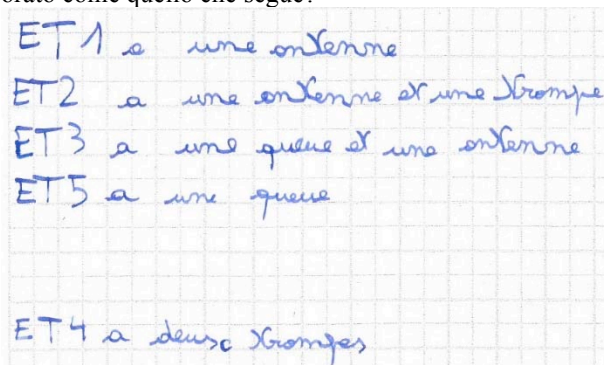 orato come quello che segue?
ET1 a une antenne
ET2 a une antenne et une trompe
ET3 a une queue et une antenne
ET5 a une queue
ET4 a deux trompes